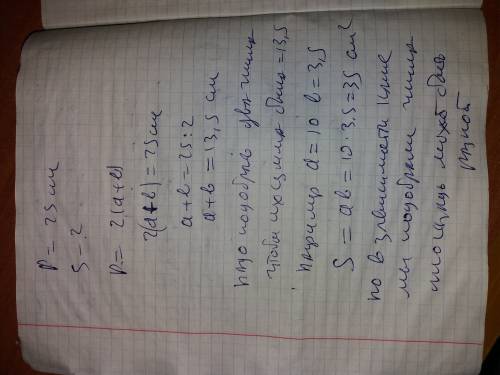 P = 25 см
S - ?
P = 2(a+b)
2(a+b) = 25 см
a+b = 25:2
a+b = 13,5 см
надо подобрать два числа
чтобы их сумма была =13,5
например a=10 b=3,5
S = ab = 10·3.5=35 см²
но в зависимости какие
мы подобрали числа
площадь может быть
разной